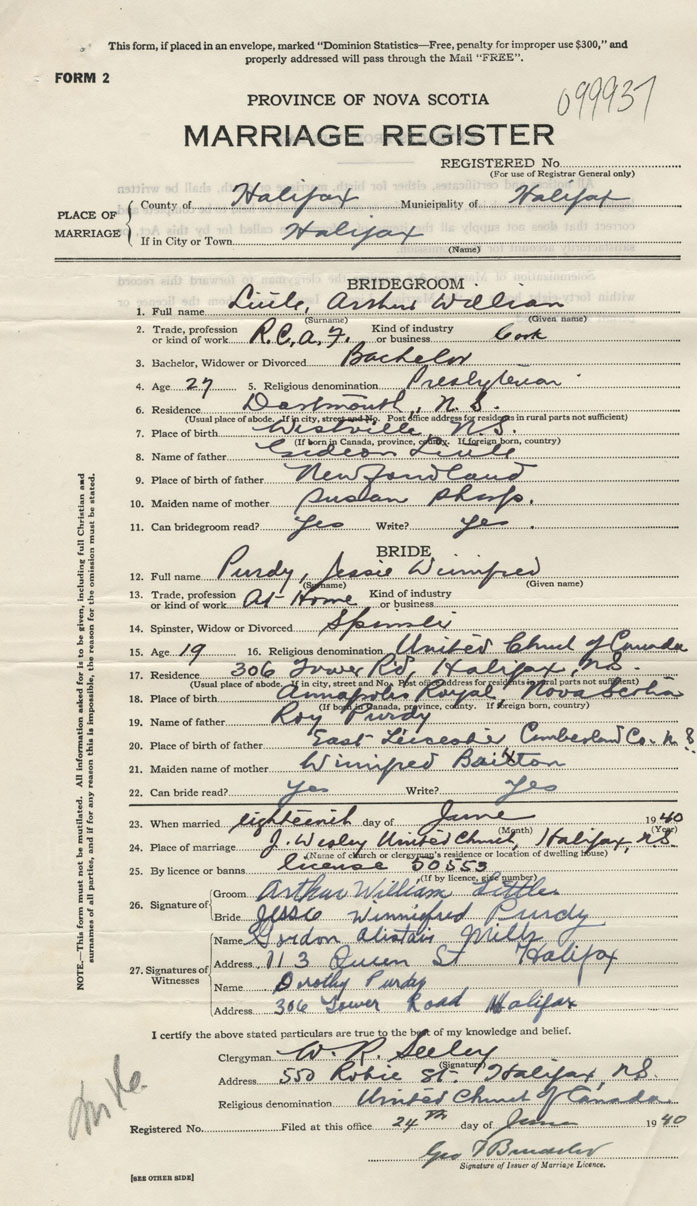 This form, if placed in an envelope, marked "Dominion Statistics—Free, penalty for improper use $300," and
properly addressed will pass through the Mail "FREE".
FORM 2
099937
PROVINCE OF NOVA SCOTIA
MARRIAGE REGISTER
REGISTERED No.
(For use of Registrar General only)
PLACE OF MARRIAGE
County of Halifax Municipality of Halifax
If in City or Town Halifax
(Name)
BRIDEGROOM
1. Full name Little, Arthur William
(Surname) (Given name)
2. Trade, profession or kind of work R.C.A.F. Kind of industry or business Cook
3. Bachelor, Widower or Divorced Bachelor
4. Age 27 5. Religious denomination Presbyterian
6. Residence Dartmouth, N.S.
(Usual place of abode. If in city, street and No. Post office address for residents in rural parts not sufficient)
7. Place of birth Westville, N.S.
(If born in Canada, province, county. If foreign born, country)
8. Name of father Gideon Little
9. Place of birth of father Newfoundland
10. Maiden name of mother Susan Sharp.
11. Can bridegroom read? Yes Write? Yes.
BRIDE
12. Full name Purdy, Jessie Winnifred
(Surname) (Given name)
13. Trade, profession or kind of work At Home Kind of industry or business
14. Spinster, Widow or Divorced Spinster
15. Age 19 16. Religious denomination United Church of Canada
17. Residence 306 Tower Rd, Halifax, N.S.
(Usual place of abode. If in city, street and No. Post office address for residents in rural parts not sufficient)
18. Place of birth Annapolis Royal, Nova Scotia
(If born in Canada, province, county. If foreign born, country)
19. Name of father Roy Purdy
20. Place of birth of father East Leicester Cumberland Co. N.S.
21. Maiden name of mother Winnifred
22. Can bride read? Yes Write? Yes
23. When married eighteenth day of June 1940
(Month) (Year)
24. Place of marriage J. Wesley United Church, Halifax, N.S.
(Name of church or clergyman's residence or location of dwelling house)
25. By licence or banns license 50553
(If by licence, give number)
26. Signature of
Groom Arthur William Little
Bride Jessie Winnifred Purdy
27. Signatures of Witnesses
Name Gordon Alistair Mills
Address 113 Queen St Halifax
Name Dorothy Purdy
Address 306 Tower Road Halifax
I certify the above stated particulars are true to the best of my knowledge and belief.
Clergyman W. R. Seeley
(Signature)
Address 550 Robie St. Halifax, N.S.
Religious denomination United Church of Canada.
Registered No. Filed at this office 24th day of June 1940
Geo
Signature of Issuer of Marriage Licence.
[SEE OTHER SIDE]
NOTE.—This form must not be mutilated. All information asked for is to be given, including full Christian and
surnames of all parties, and if for any reason this is impossible, the reason for the omission must be stated.